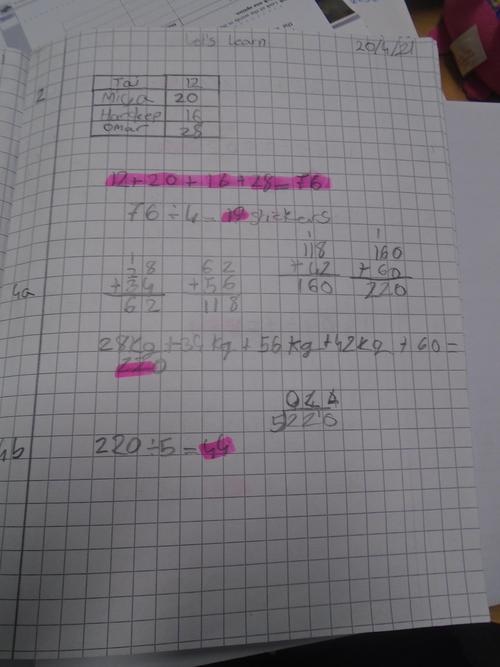 Let's Learn 20/4/21
2
Tai 12
Micha 20
Hardeep 16
Omar 28
12+20+16+28=76
76÷4=19 stickers
4a
1
28
+34
62
62
+56
118
1
118
+42
160
1
160
+60
220
28kg+34kg+56kg+42kg+60=
220
044
5220
4b
220÷5=44